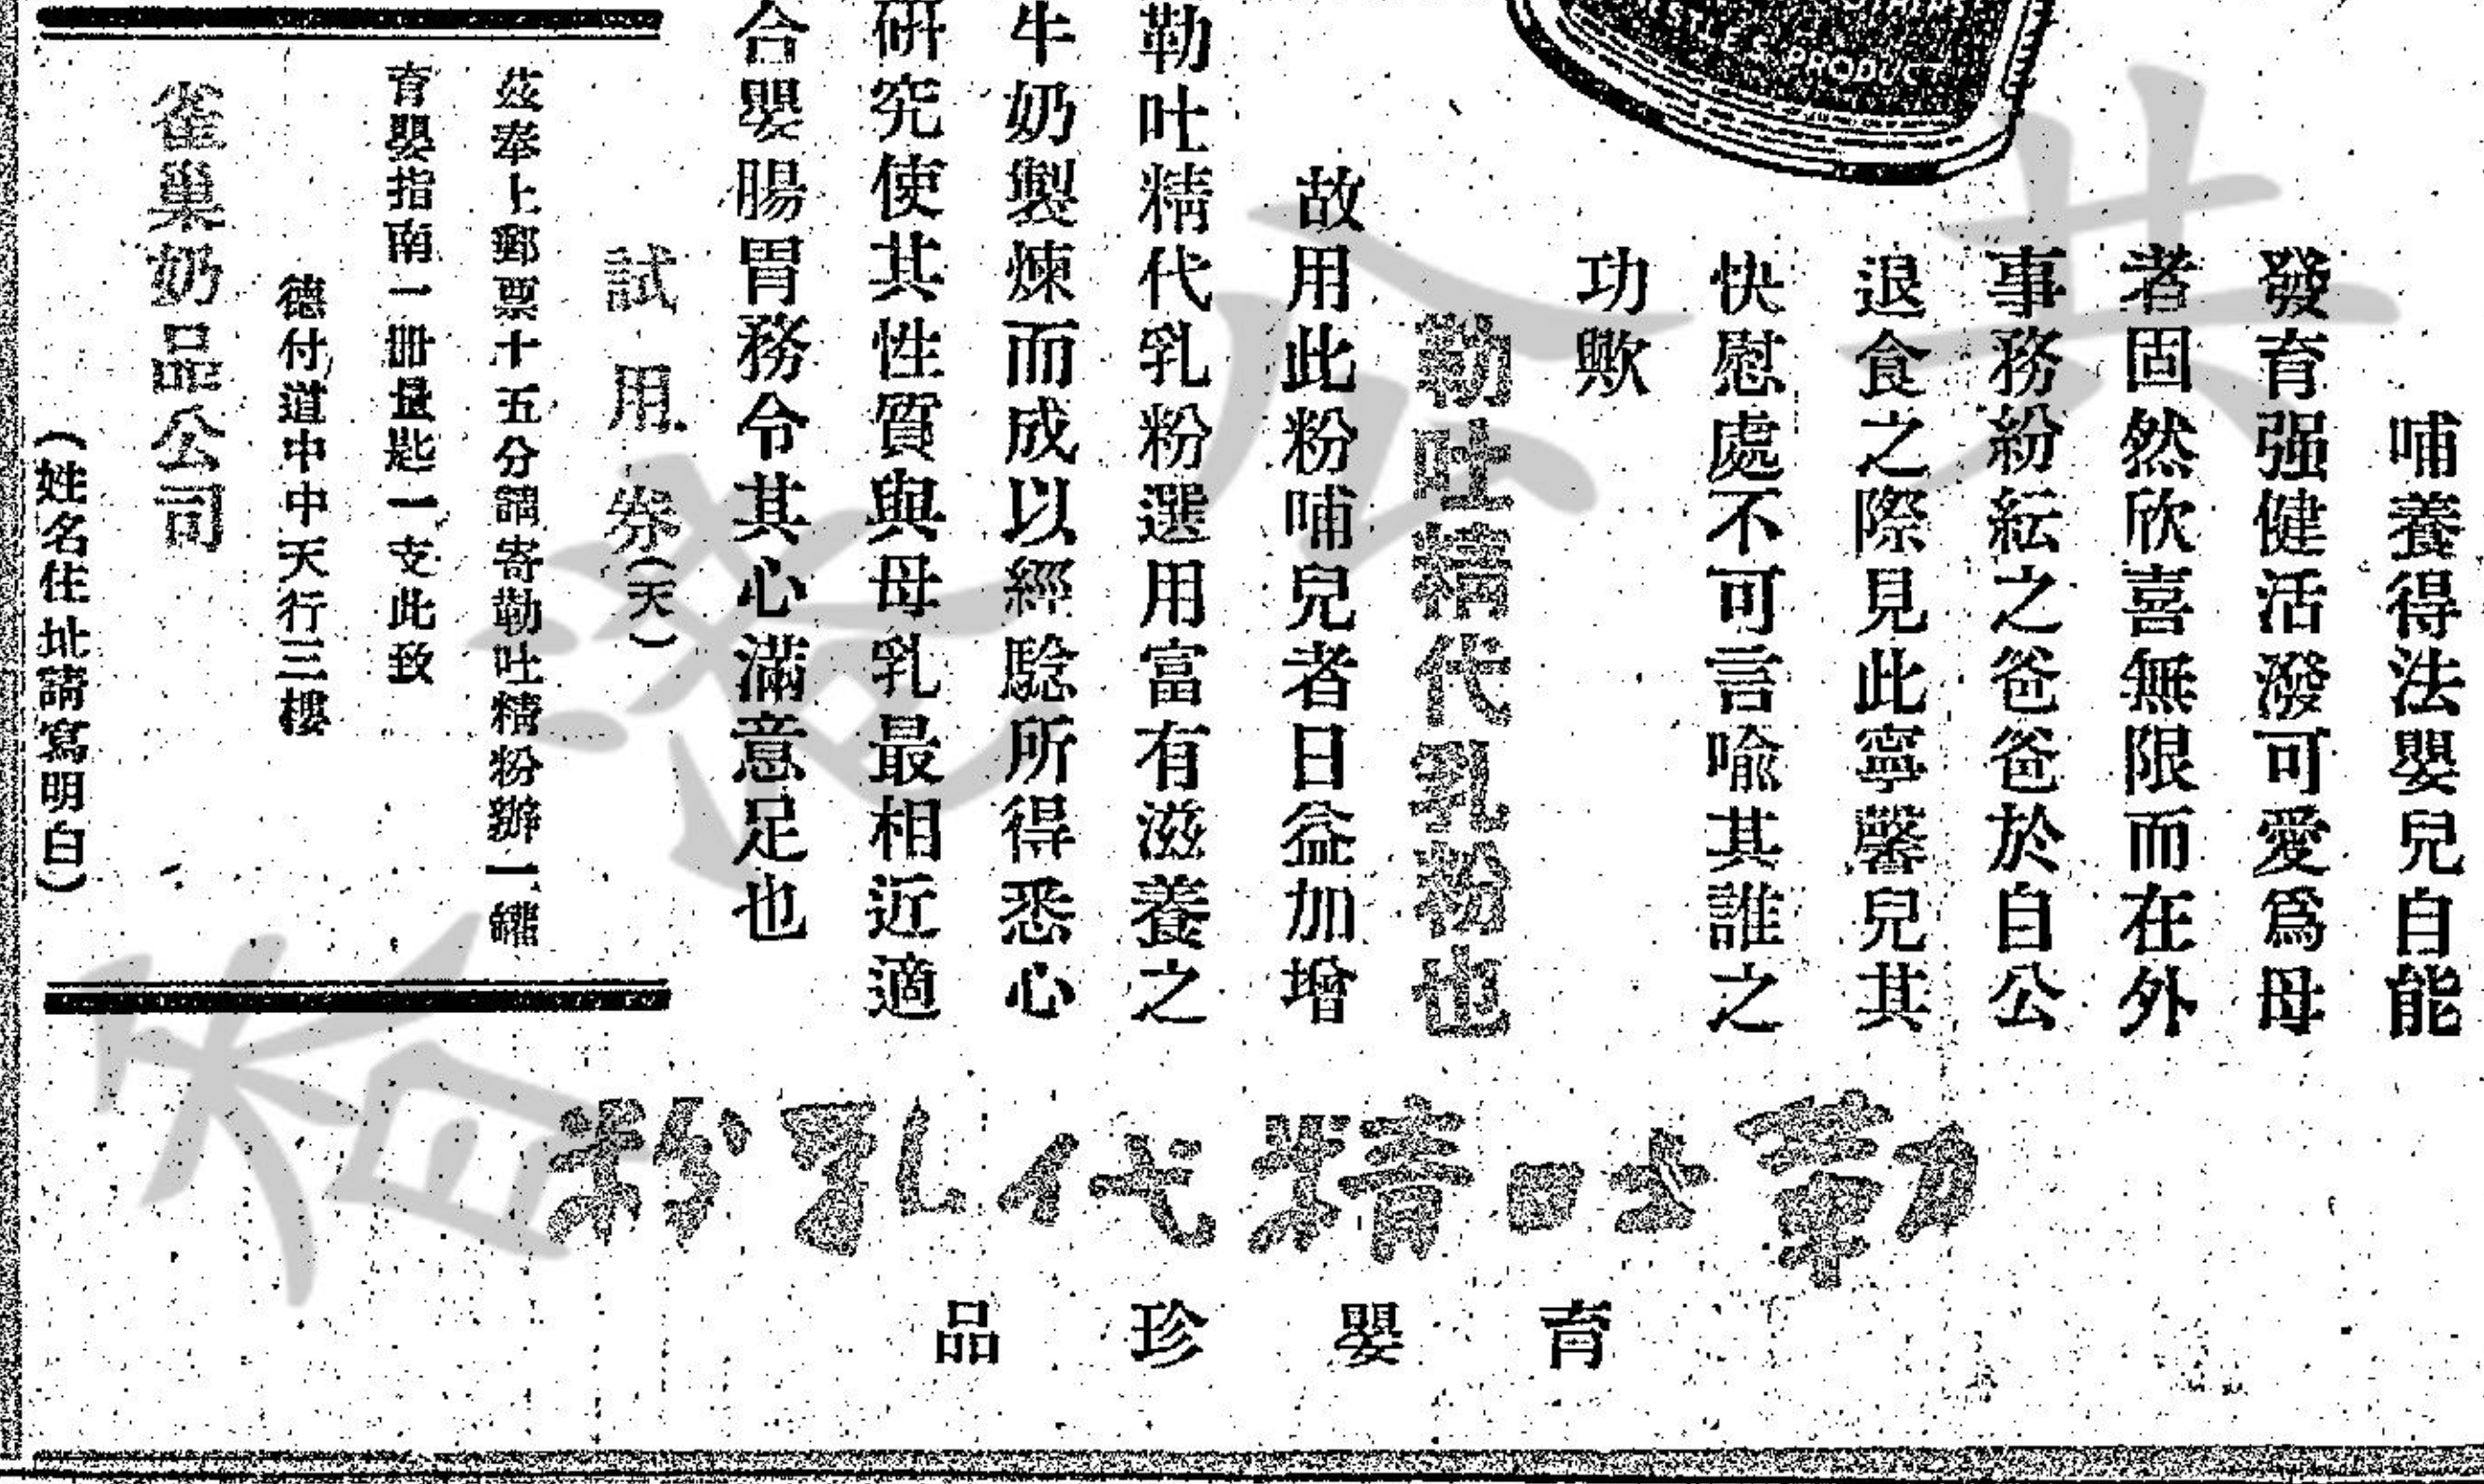 哺養得法嬰兒自能
發育强健活潑可愛爲母
者固然欣喜無限而在外
事務紛紜之爸爸於自公
退食之際見此寧馨兒其
快慰處不可言喻其誰之
功歟
勒吐精代乳粉也
故用此粉哺兒者日益加增
勒吐精代乳粉選用富有滋養之
牛奶製煉而成以經驗所得悉心
研究使其性質與母乳最相近適
合嬰腸胃務令其心滿意足也
試用券(天)
茲奉上郵票十五分請寄勒吐精粉辦一罐
育嬰指南一册量匙一支此致
德付道中中天行三樓
雀巢奶品公司
(姓名住址請寫明白)
勒吐精代乳粉
育嬰珍品
PRODUCT
公共